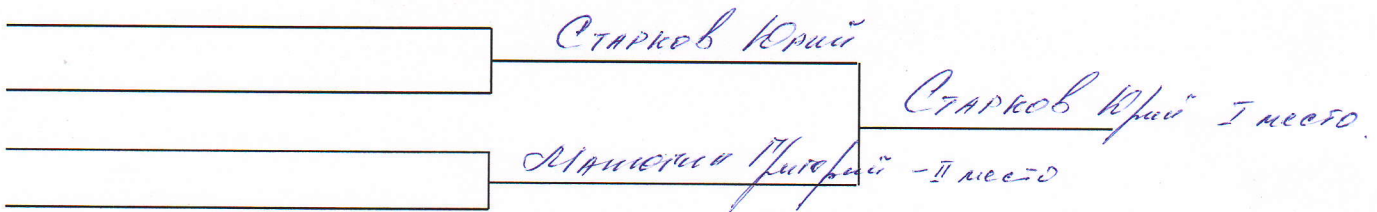 Старков Юрий
Старков Юрий I место.
Григорий - II место